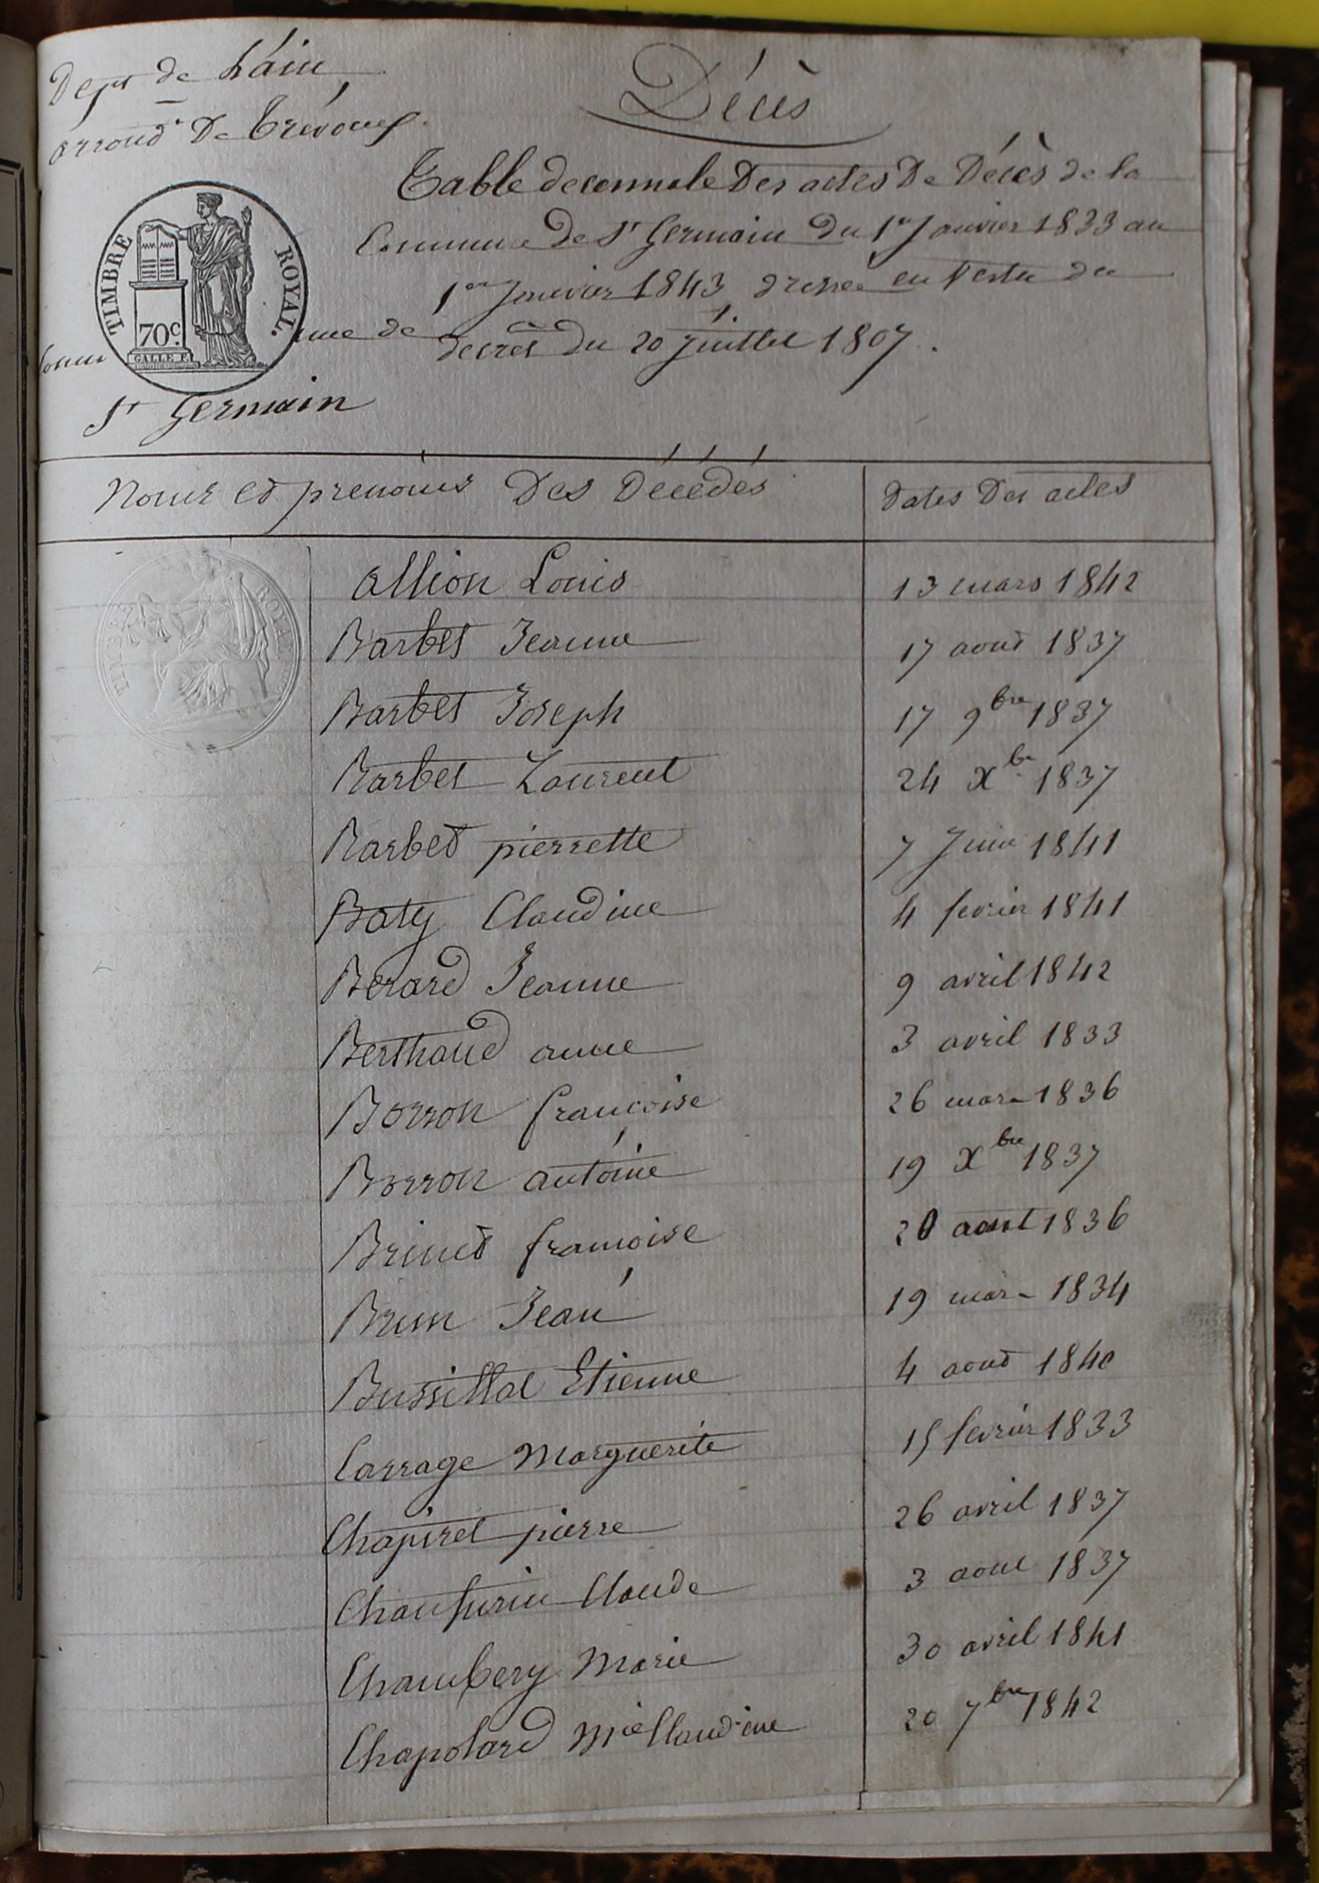 Dept de l'ain
arrond.t De Trévoux
Décès
Table decennale Des actes De Décès de la
Commune De St Germain Du 1er Janvier 1833 au
1er Janvier 1843, dressée en vertu du
decrèt du 20 Juillet 1807.
Commune de
TIMBRE ROYAL.
70c.
St Germain
Noms et prenoms Des Décédés
Dates Des actes
allion Louis 13 mars 1842
Barbet Jeanne 17 aout 1837
Barbet Joseph 17 9bre 1837
Barbet Laurent 24 Xbre 1837
Barbet pierrette 7 Juin 1841
Baty Claudine 4 fevrier 1841
Berard Jeanne 9 avril 1842
Berthaud anne 3 avril 1833
Borron françoise 26 mars 1836
Borron antoine 19 Xbre 1837
françoise 20 aout 1836
Brun Jean 19 mars 1834
Bussillol Etienne 4 aout 1840
Carrage Marguerite 15 fevrier 1833
Chapiret pierre 26 avril 1837
Claude 3 aout 1837
Chambery Marie 30 avril 1841
Chapolard Mie Claudine 20 7bre 1842